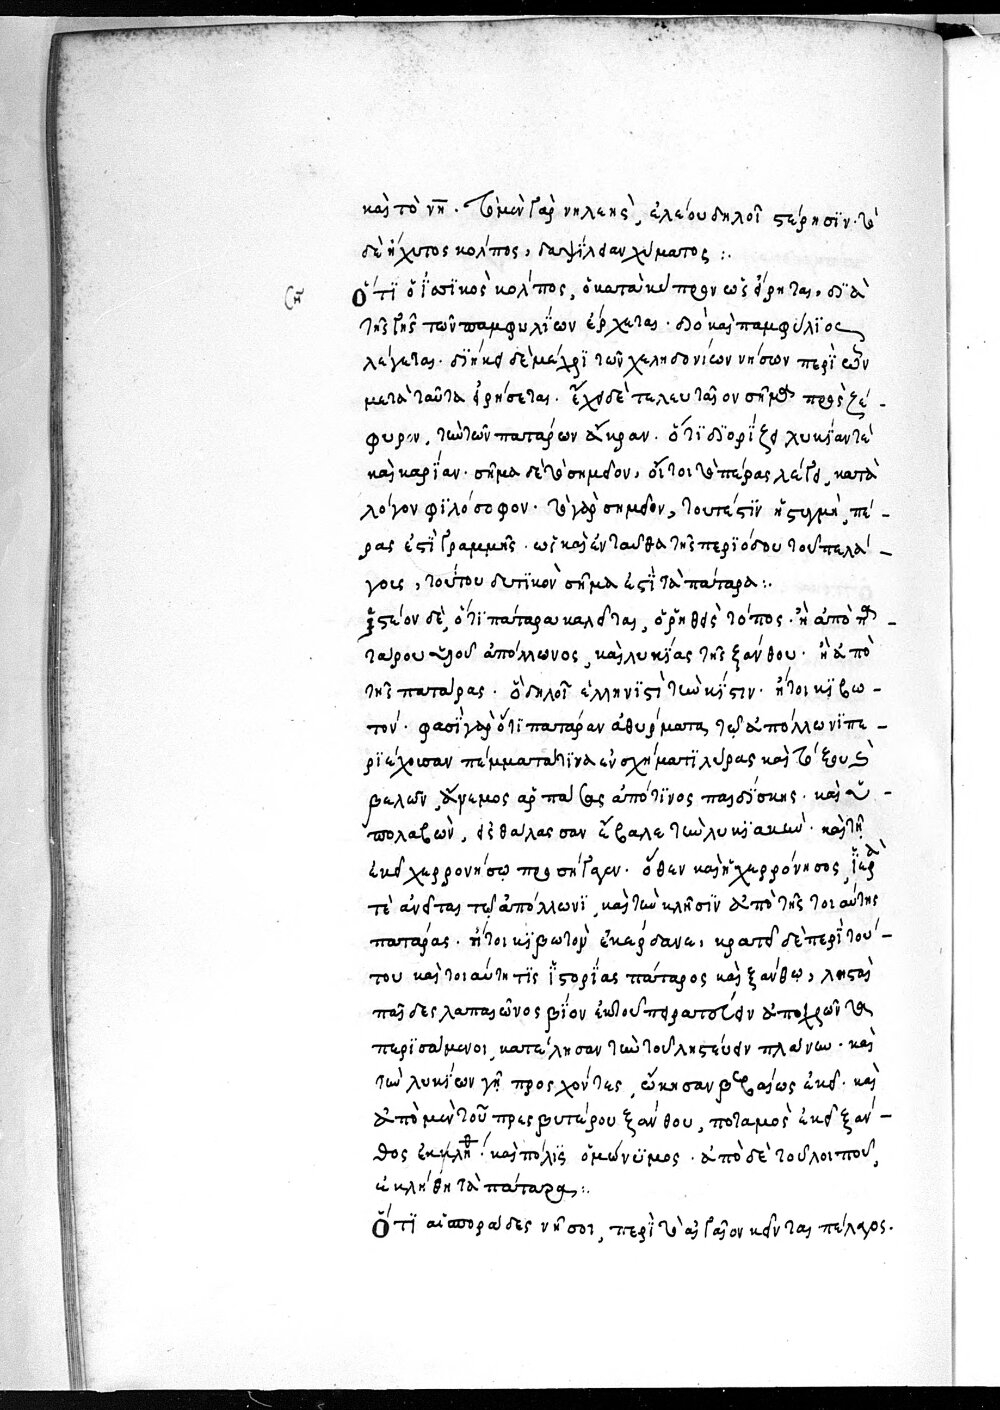 καὶ τὸ νη. τὸ μὲν γὰρ νηλεὴς, ἐλέου δηλοῖ στέρησιν· τὸ
δὲ νήχυτος κόλπος, δαψίλειαν χύματος :.
Ὅτι ὁ ἰσσικὸς κόλπος, ὁ κατὰ κύπρον ὡς εἴρηται, διὰ
τῆς γῆς τῶν παμφυλίων ἔρχεται· διὸ καὶ παμφύλιος
λέγεται. διήκει δὲ μέχρι τῶν χελιδονίων νήσων περὶ ὧν
μετὰ ταῦτα εἰρήσεται. ἔχει δὲ τελευταῖον σῆμα πρὸς ζέ-
φυρον, τὴν τῶν πατάρων ἄκραν. ὅτι διορίζει λυκίαν τὲ
καὶ καρίαν. σῆμα δὲ τὸ σημεῖον, ἤτοι τὸ πέρας λέγει, κατὰ
λόγον φιλόσοφον. τὸ γὰρ σημεῖον, τουτέστιν ἡ στιγμὴ, πέ-
ρας ἐστὶ γραμμῆς. ὡς καὶ ἐνταῦθα τῆς περιόδου τοῦ πελά-
γους, τούτου δυτικὸν σῆμα ἐστὶ τὰ πάταρα :.
Ἰστέον δὲ, ὅτι πάταρα καλεῖται, ὁ ῥηθεὶς τόπος. ἢ ἀπὸ π-
τάρου υἱοῦ ἀπόλλωνος, καὶ λυκίας τῆς ξάνθου. ἢ ἀπὸ
τῆς πατάρας. ὃ δηλοῖ ἑλληνιστὶ τὴν κίστιν. ἤτοι κιβω-
τόν. φασὶ γὰρ ὅτι πατάραν ἀθυρμάτια, τῷ ἀπόλλωνι πε-
ριέχουσαν πέμματά τινα ἐν σχήματι λύρας καὶ τόξου καὶ
βελῶν, ἄνεμος ἁρπάσας ἀπό τινος παιδίσκης. καὶ ὑ-
πολαβὼν, εἰς θάλασσαν ἔβαλε τὴν λυκιακήν. καὶ τῇ
ἐκεῖ χερρονήσῳ προσήγαγεν. ὅθεν καὶ ἡ χερρόνησος, ἱερά
τε ἀνεῖται τῷ ἀπόλλωνι, καὶ τὴν κλῆσιν ἀπὸ τῆς τοιαύτης
πατάρας. ἤτοι κιβωτοῦ ἐκέρδανε. κρατεῖ δὲ περὶ τού-
του καὶ τοιαύτη τὶς ἱστορία· πάταρος καὶ ξάνθος, λῃσταὶ
παῖδες λαπαιῶνος βίον ἐκ τοῦ πειρατεύειν ἀποχρῶντα
περισάμενοι, κατέλησαν τὴν τοῦ λῃστεύειν πλάνην. καὶ
τῇ λυκίων γῇ προσχόντες, ᾤκησαν βεβαίως ἐκεῖ. καὶ
ἀπὸ μὲν τοῦ πρεσβυτέρου ξάνθου, ποταμὸς ἐκεῖ ξάν-
θος ἐκλήθη. καὶ πόλις ὁμώνυμος. ἀπὸ δὲ τοῦ λοιποῦ,
ἐκλήθη τὰ πάταρα :.
Ὅτι αἱ σποράδες νῆσοι, περὶ τὸ αἰγαῖον κεῖνται πέλαγος.